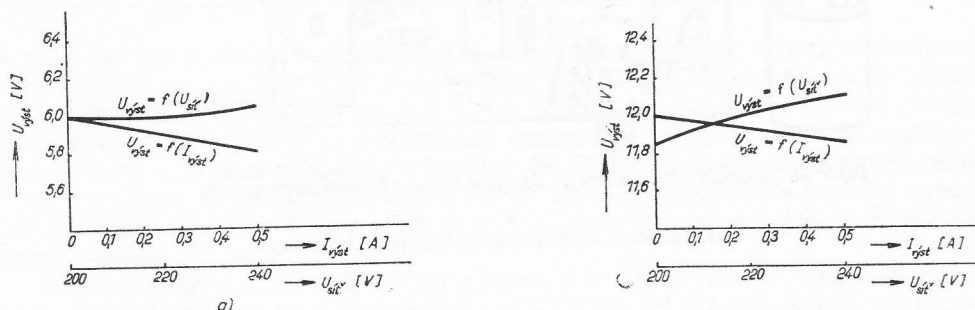 U výst [V]
6,4
6,2
6,0
5,8
5,6
U výst = f (U síť)
U výst = f (I výst)
0 0,1 0,2 0,3 0,4 0,5
I výst [A]
200 220 240
U síť [V]
a)
U výst [V]
12,4
12,2
12,0
11,8
11,6
U výst = f (U síť)
U výst = f (I výst)
0 0,1 0,2 0,3 0,4 0,5
I výst [A]
200 220 240
U síť [V]